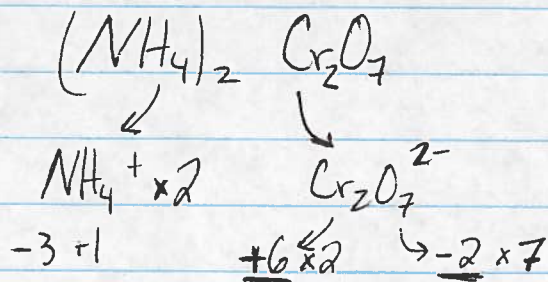 (NH₄)₂ Cr₂O₇
NH₄⁺ ×2 Cr₂O₇²⁻
-3 +1 +6 ×2 -2 ×7